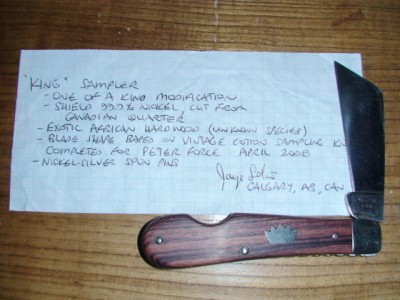 "KING" SAMPLER
- ONE OF A KIND MODIFICATION
- SHIELD 99.9% NICKEL, CUT FROM
CANADIAN QUARTER
- EXOTIC AFRICAN HARDWOOD (UNKNOWN SPECIES)
- BLADE SHAPE BASED ON VINTAGE COTTON SAMPLING KN
COMPLETED FOR PETER FORCE APRIL 2008
- NICKEL-SILVER SPUN PINS
CALGARY, AB, CAN